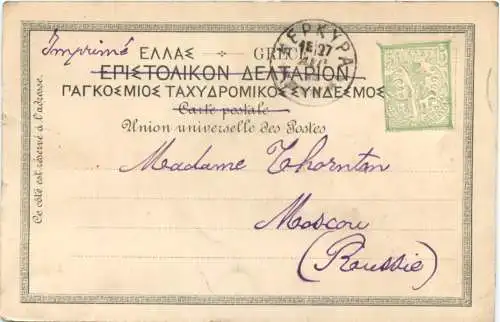 Imprimé
ΕΛΛΑΣ GRÈCE
ΕΠΙΣΤΟΛΙΚΟΝ ΔΕΛΤΑΡΙΟΝ
ΠΑΓΚΟΣΜΙΟΣ ΤΑΧΥΔΡΟΜΙΚΟΣ ΣΥΝΔΕΣΜΟΣ
Carte postale
Union universelle des Postes
Ce côté est réservé à l'adresse.
ΚΕΡΚΥΡΑ
27
Madame Thornton
Moscou
(Roussie)